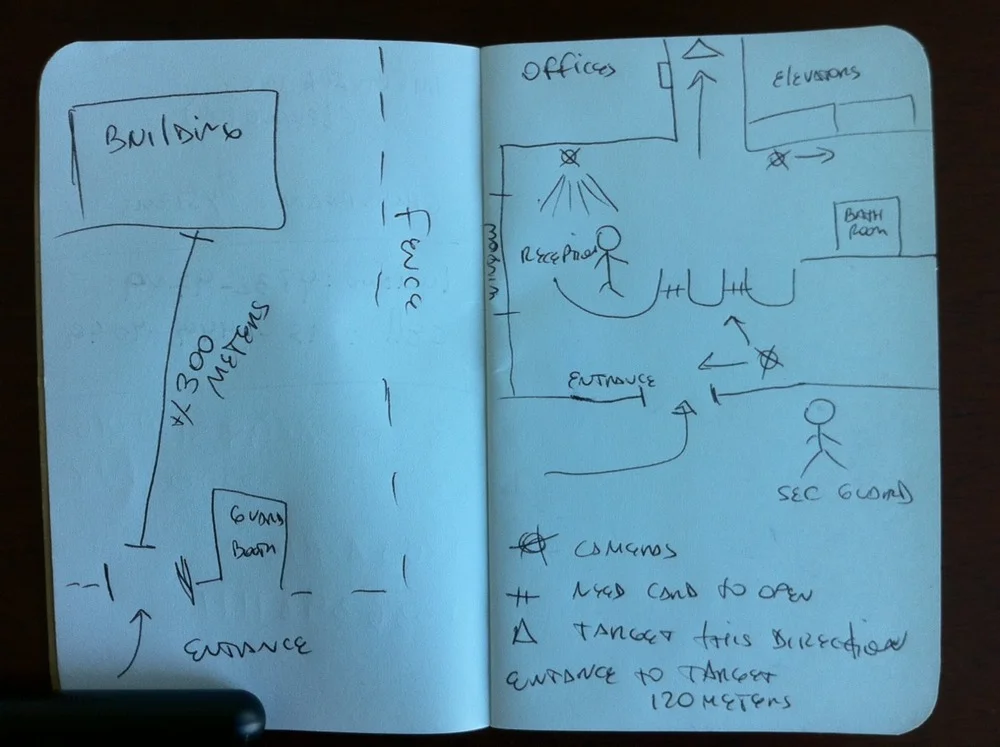 BUILDING
FENCE
300
METERS
GUARD
BOOTH
ENTRANCE
OFFICES
ELEVATORS
BATH
ROOM
RECEPTION
ENTRANCE
SEC GUARD
CAMERAS
NEED CARD TO OPEN
TARGET THIS DIRECTION
ENTRANCE TO TARGET
120 METERS